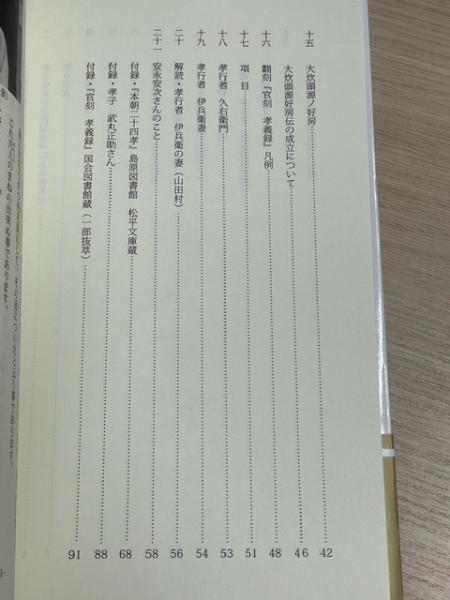 十五 大炊頭源ノ好房 42
大炊頭源好房伝の成立について 46
十六 翻刻『官刻 孝義録』凡例 48
十七 項目 51
十八 孝行者 久右衛門 53
十九 孝行者 伊兵衛妻 54
二十 解読・孝行者 伊兵衛の妻(山田村) 56
二十一 安永安次さんのこと 58
付録・『本朝二十四孝』島原図書館 松平文庫蔵 68
付録・孝子 武丸正助さん 88
付録・『官刻 孝義録』国会図書館蔵(一部抜萃) 91